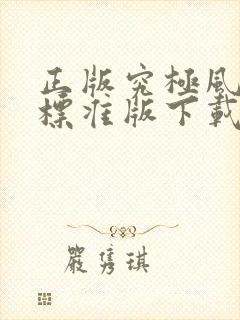 正版究極風
標准版下載
嚴隽琪